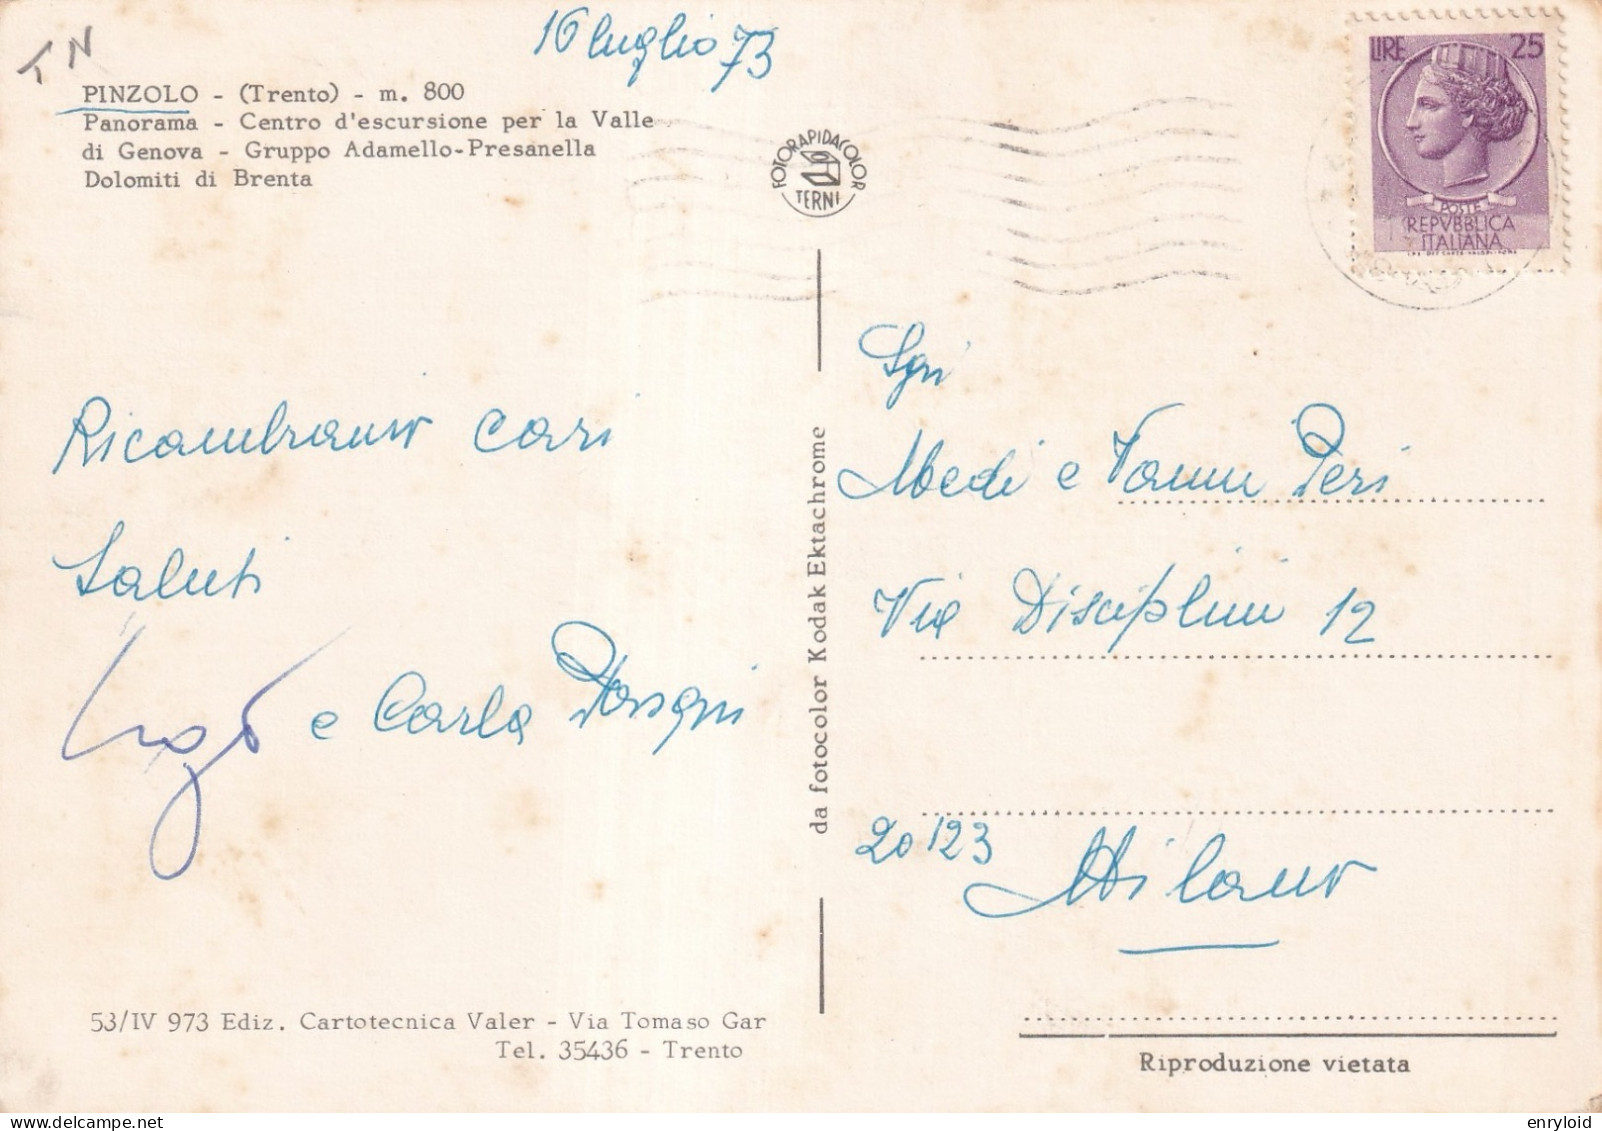 TN
16 luglio 73
PINZOLO - (Trento) - m. 800
Panorama - Centro d'escursione per la Valle
di Genova - Gruppo Adamello-Presanella
Dolomiti di Brenta
FOTORAPIDACOLOR
TERNI
LIRE 25
POSTE
REPVBBLICA
ITALIANA
Ricambiamo cari
Saluti
e Carla
da fotocolor Kodak Ektachrome
Sgri
e Peri
Via Disciplini 12
20123
Milano
53/IV 973 Ediz. Cartotecnica Valer - Via Tomaso Gar
Tel. 35436 - Trento
Riproduzione vietata
enryloid